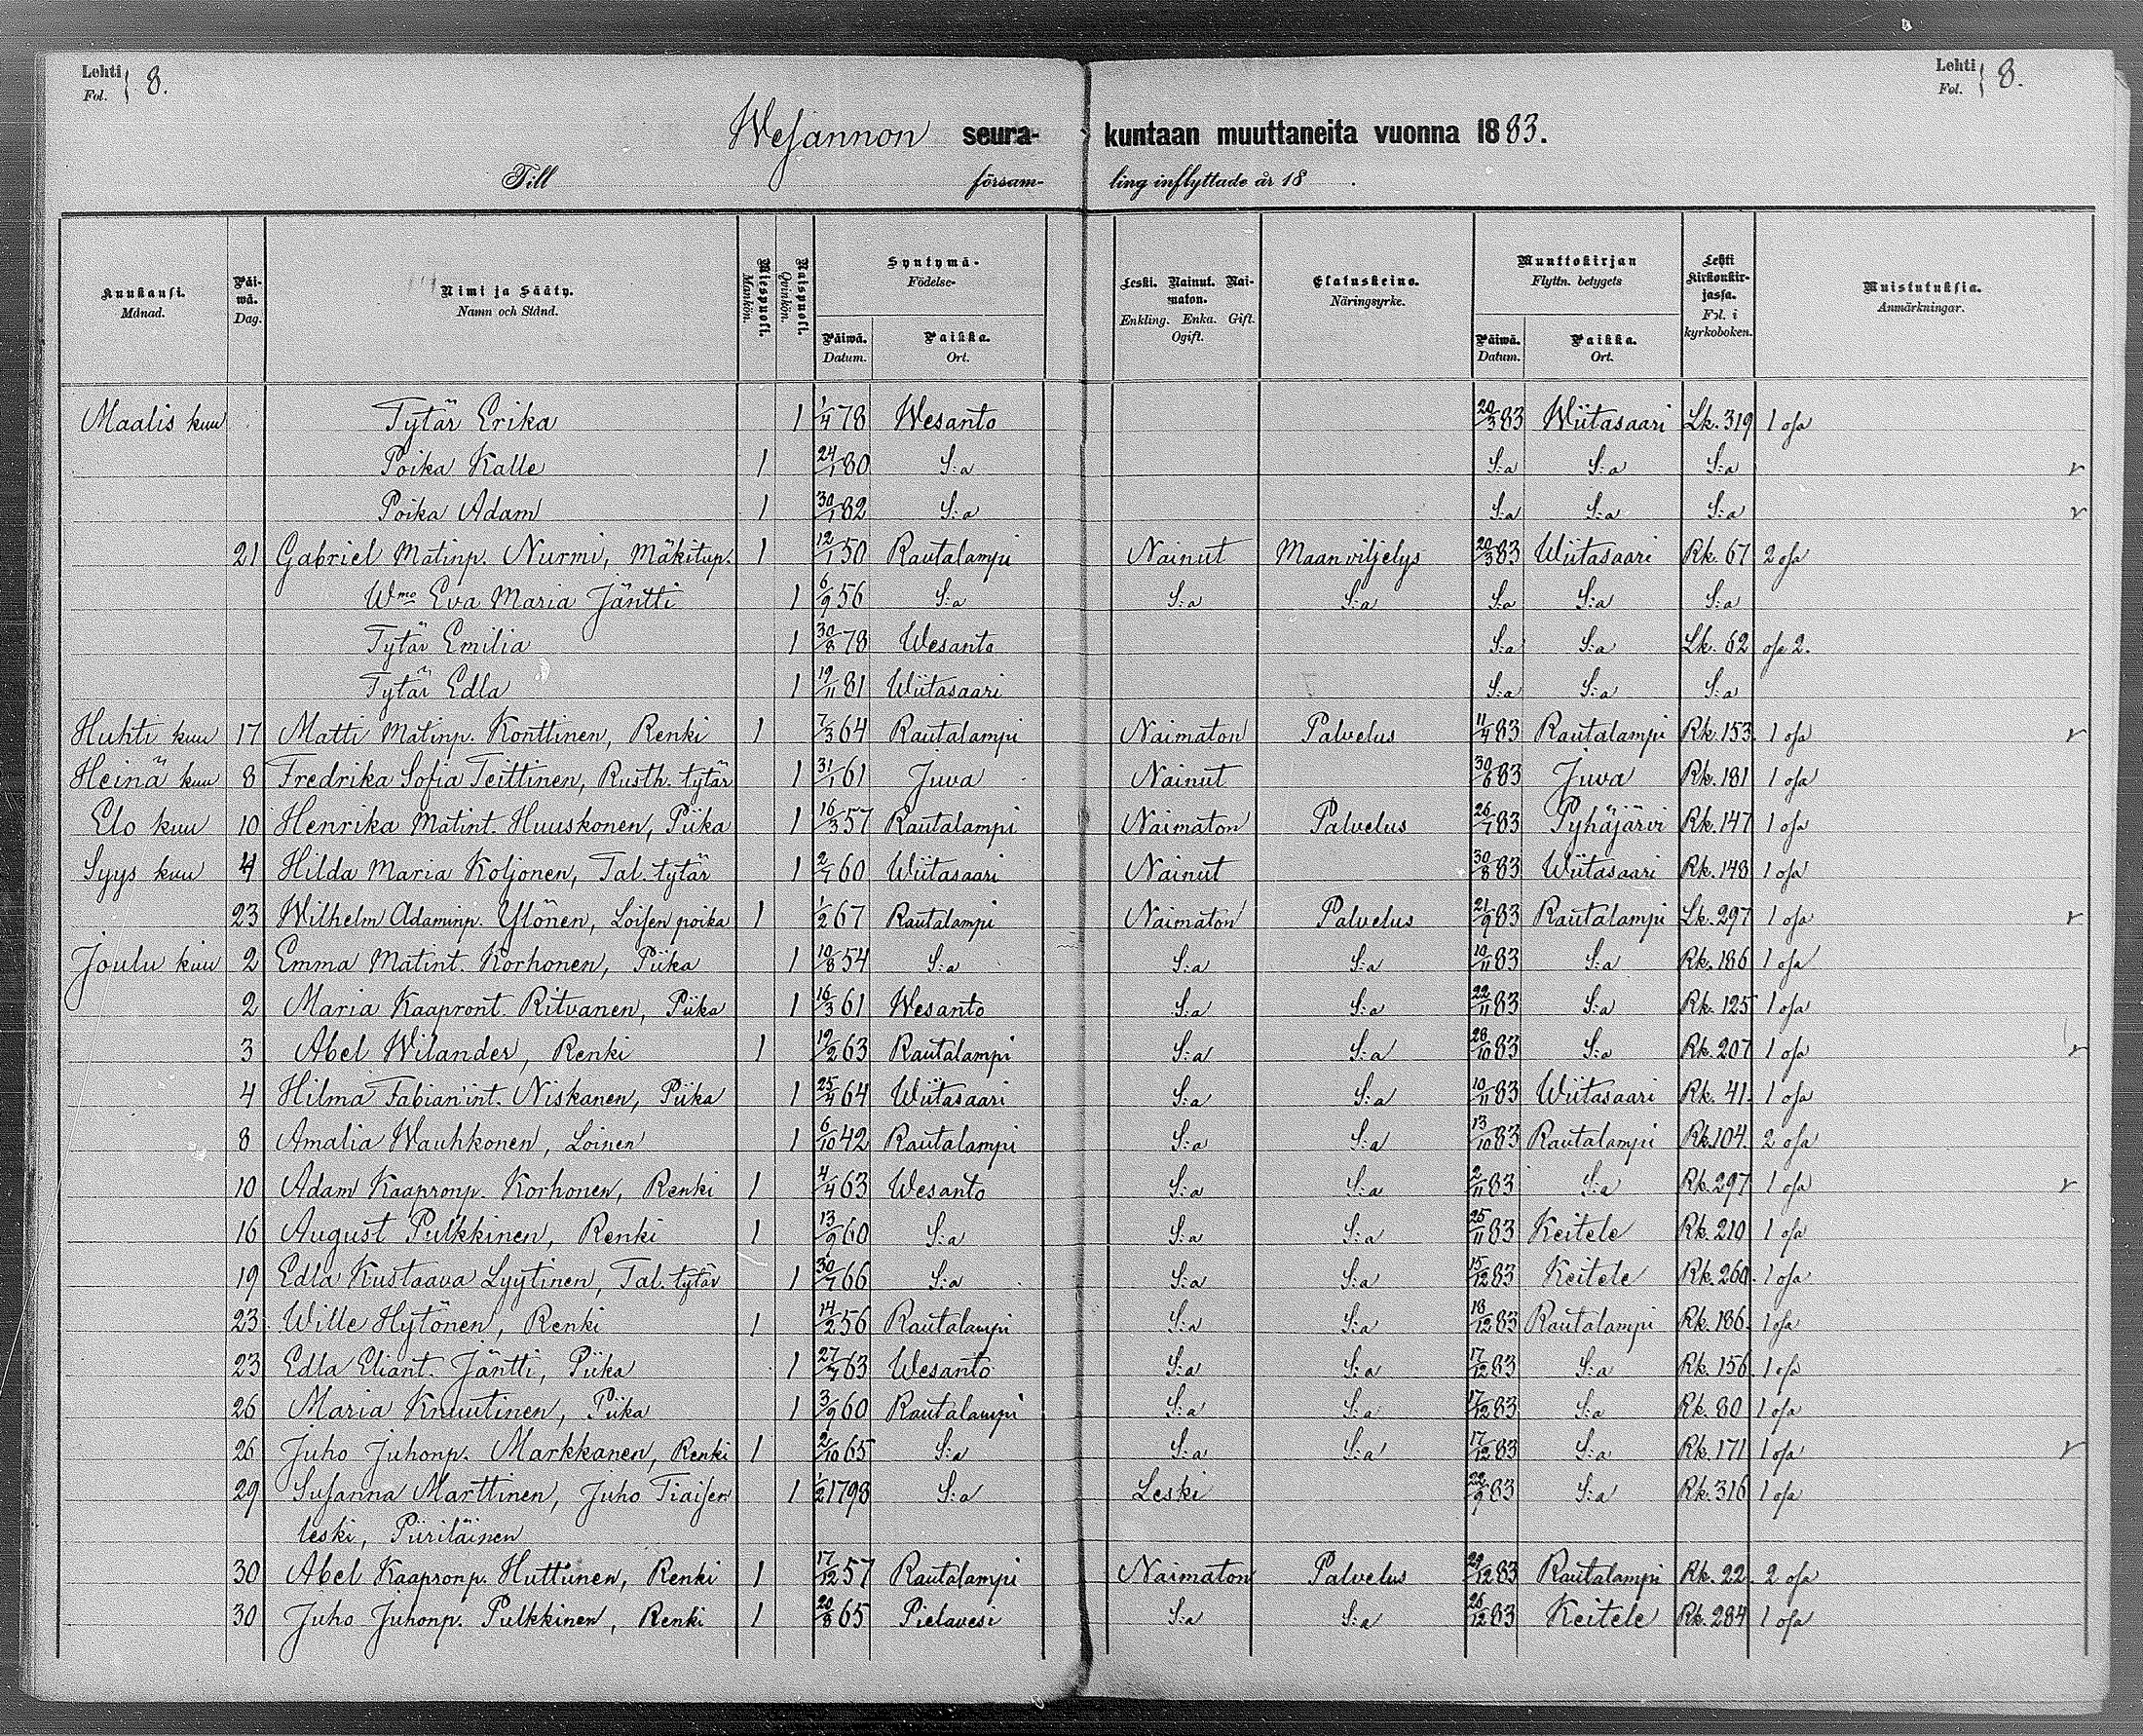 Lehti 8. Lehti 8.
Fol. Fol.
Wesannon seura- kuntaan muuttaneita vuonna 1883.
Till försam- ling inflyttade år 18 .
Kuukausi. Månad. Päi-wä. Dag. Nimi ja Sääty. Namn och Stånd. Miespuoli. Mankön. Naispuoli. Qvinkön. Syntymä- Födelse- Päiwä. Datum. Paikka. Ort. Leski. Nainut. Nai-maton. Enkling. Enka. Gift. Ogift. Elatuskeino. Näringsyrke. Muuttokirjan Flyttn. betygets Päiwä. Datum. Paikka. Ort. Lehti Kirkonkir-jassa. Fol. i kyrkoboken. Muistutuksia. Anmärkningar.
Maalis kuu Tytär Erika 1 1/4 78 Wesanto 20/3 83 Wiitasaari Lk. 319 1 osa
Poika Kalle 1 24/1 80 S:a S:a S:a S:a r
Poika Adam 1 30/1 82 S:a S:a S:a S:a r
21 Gabriel Matinp. Nurmi, Mäkitup. 1 12/1 50 Rautalampi Nainut Maanviljelys 20/3 83 Wiitasaari Rk. 67 2 osa
Wmo Eva Maria Jäntti 1 6/9 56 S:a S:a S:a S:a S:a S:a
Tytär Emilia 1 30/8 78 Wesanto S:a S:a Lk. 62 osa 2.
Tytär Edla 1 19/11 81 Wiitasaari S:a S:a S:a
Huhti kuu 17 Matti Matinp. Konttinen, Renki 1 7/3 64 Rautalampi Naimaton Palvelus 11/4 83 Rautalampi Rk. 153. 1 osa r
Heinä kuu 8 Fredrika Sofia Teittinen, Rusth. tytär 1 31/1 61 Juva Nainut 30/6 83 Juva Rk. 181 1 osa
Elo kuu 10 Henrika Matint. Huuskonen, Piika 1 16/3 57 Rautalampi Naimaton Palvelus 26/7 83 Pyhäjärvi Rk. 147 1 osa
Syys kuu 4 Hilda Maria Koljonen, Tal. tytär 1 2/7 60 Wiitasaari Nainut 30/8 83 Wiitasaari Rk. 148 1 osa
23 Wilhelm Adaminp. Ylönen, Loisen poika 1 1/2 67 Rautalampi Naimaton Palvelus 21/9 83 Rautalampi Lk. 297 1 osa r
Joulu kuu 2 Emma Matint. Korhonen, Piika 1 10/8 54 S:a S:a S:a 10/11 83 S:a Rk. 186 1 osa
2 Maria Kaapront. Ritvanen, Piika 1 16/3 61 Wesanto S:a S:a 22/11 83 S:a Rk. 125 1 osa
3 Abel Wilander, Renki 1 19/2 63 Rautalampi S:a S:a 28/10 83 S:a Rk. 207 1 osa r
4 Hilma Fabian'int. Niskanen, Piika 1 25/4 64 Wiitasaari S:a S:a 10/11 83 Wiitasaari Rk. 41. 1 osa
8 Amalia Wauhkonen, Loinen 1 6/10 42 Rautalampi S:a S:a 13/10 83 Rautalampi Rk. 104. 2 osa
10 Adam Kaapronp. Korhonen, Renki 1 4/4 63 Wesanto S:a S:a 2/11 83 S:a Rk. 297 1 osa r
16 August Pulkkinen, Renki 1 13/9 60 S:a S:a S:a 25/11 83 Keitele Rk. 210 1 osa
19 Edla Kustaava Lyytinen, Tal. tytär 1 30/7 66 S:a S:a S:a 15/12 83 Keitele Rk. 260. 1 osa
23. Wille Hytönen, Renki 1 14/2 56 Rautalampi S:a S:a 18/12 83 Rautalampi Rk. 186. 1 osa
23 Edla Eliant. Jäntti, Piika 1 27/7 63 Wesanto S:a S:a 17/12 83 S:a Rk. 156. 1 osa
26 Maria Knuutinen, Piika 1 3/9 60 Rautalampi S:a S:a 17/12 83 S:a Rk. 80 1 osa
26 Juho Juhonp. Markkanen, Renki 1 2/10 65 S:a S:a S:a 17/12 83 S:a Rk. 171 1 osa r
29 Susanna Marttinen, Juho Tiaisen 1 1/2 1798 S:a Leski 22/9 83 S:a Rk. 316 1 osa
leski, Piiriläinen
30 Abel Kaapronp. Huttunen, Renki 1 17/12 57 Rautalampi Naimaton Palvelus 29/12 83 Rautalampi Rk. 22. 2 osa
30 Juho Juhonp. Pulkkinen, Renki 1 20/8 65 Pielavesi S:a S:a 26/12 83 Keitele Rk. 284 1 osa